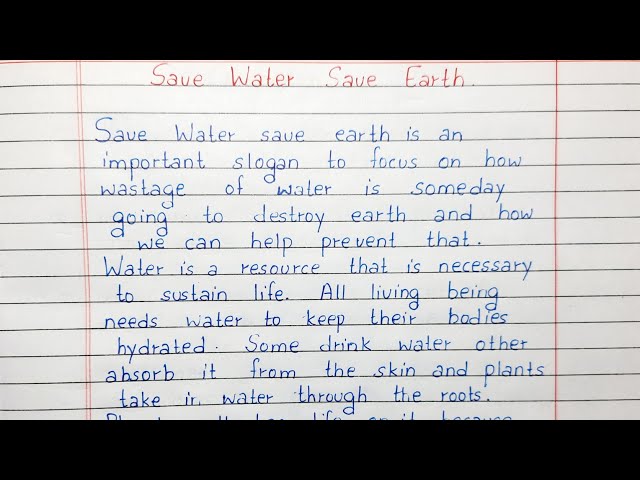 Save Water Save Earth.
Save Water save earth is an
important slogan to focus on how
wastage of water is someday
going to destroy earth and how
we can help prevent that.
Water is a resource that is necessary
to sustain life. All living being
needs water to keep their bodies
hydrated. Some drink water other
absorb it from the skin and plants
take in water through the roots.
life on it because